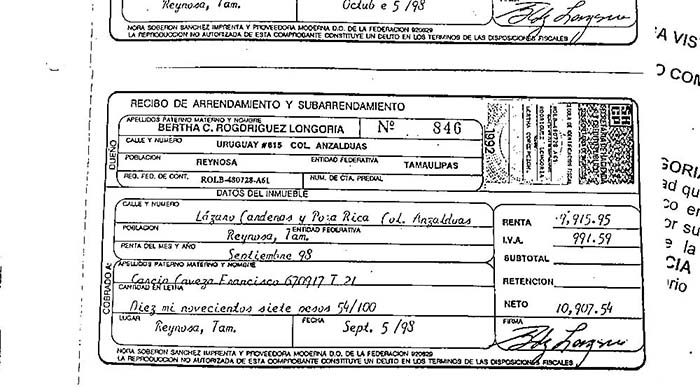 Reynosa, Tam.
Octub e 5 /98
NORA SOBERON SANCHEZ IMPRENTA Y PROVEEDORA MODERNA D.O. DE LA FEDERACION 920829
LA REPRODUCCION NO AUTORIZADA DE ESTA COMPROBANTE CONSTITUYE UN DELITO EN LOS TERMINOS DE LAS DISPOSICIONES FISCALES
A VIS
O COM
RECIBO DE ARRENDAMIENTO Y SUBARRENDAMIENTO
APELLIDOS PATERNO MATERNO Y NOMBRE
BERTHA C. ROGDRIGUEZ LONGORIA
Nº 846
1992
DUEÑO
CALLE Y NUMERO
URUGUAY #615 COL. ANZALDUAS
POBLACION
REYNOSA
ENTIDAD FEDERATIVA
TAMAULIPAS
REG. FED. DE CONT.
ROLB-480728-A61
NUM. DE CTA. PREDIAL
DATOS DEL INMUEBLE
CALLE Y NUMERO
Lázaro Cardenas y Poza Rica Col. Anzalduas
POBLACION
ENTIDAD FEDERATIVA
Reynosa, Tam.
RENTA DEL MES Y AÑO
Septiembre 98
COBRADO A:
APELLIDOS PATERNO MATERNO Y NOMBRE
Garcia Caveza Francisco 670917 T 21
CANTIDAD EN LETRA
Diez mi novecientos siete pesos 54/100
LUGAR
Reynosa, Tam.
FECHA
Sept. 5 /98
RENTA 9,915.95
I.V.A. 991.59
SUBTOTAL
RETENCION
NETO 10,907.54
FIRMA
NORA SOBERON SANCHEZ IMPRENTA Y PROVEEDORA MODERNA D.O. DE LA FEDERACION 920829
LA REPRODUCCION NO AUTORIZADA DE ESTA COMPROBANTE CONSTITUYE UN DELITO EN LOS TERMINOS DE LAS DISPOSICIONES FISCALES
GORIA
ad qu
co en
or su
e la
CIA
ario